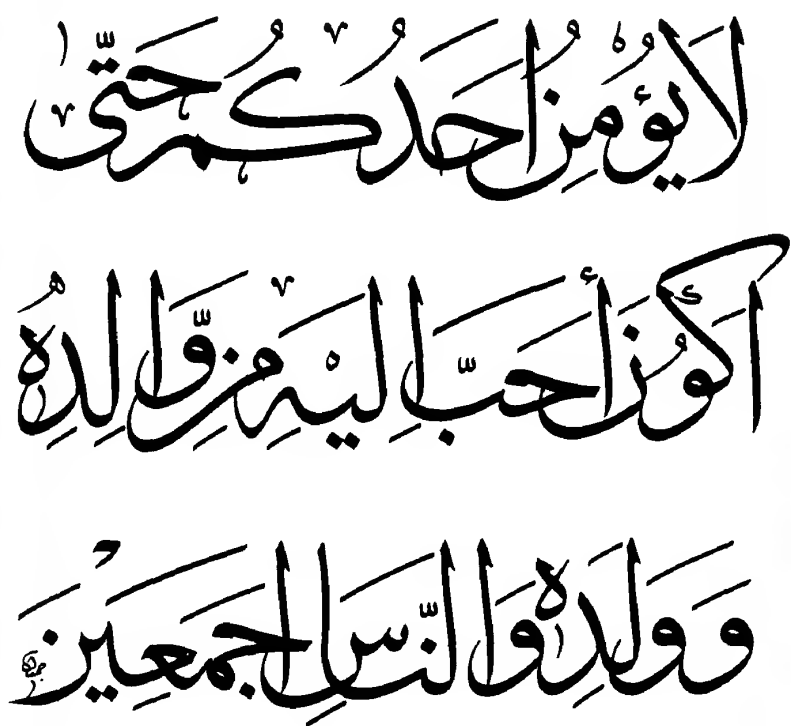 لَا يُؤْمِنُ اَحَدُكُمْ حَتّٰى
اَكُوْنَ أَحَبَّ اِلَيْهِ مِنْ وَّالِدِهٖ
وَوَلَدِهٖ وَالنَّاسِ اَجْمَعِيْنَ